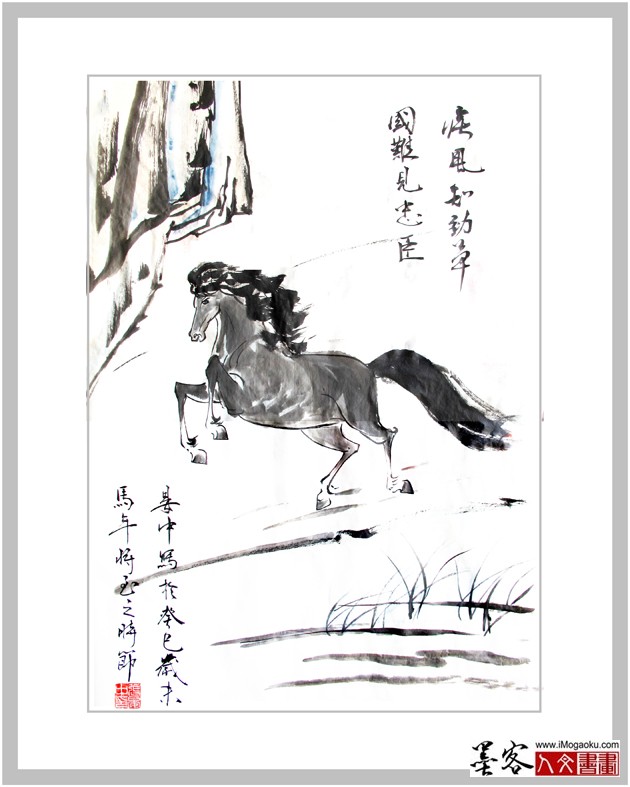 疾風知勁草
國難見忠臣
晏中寫於癸巳歲末
馬年將至之時節
墨客
www.iMogaoku.com
人文書畫